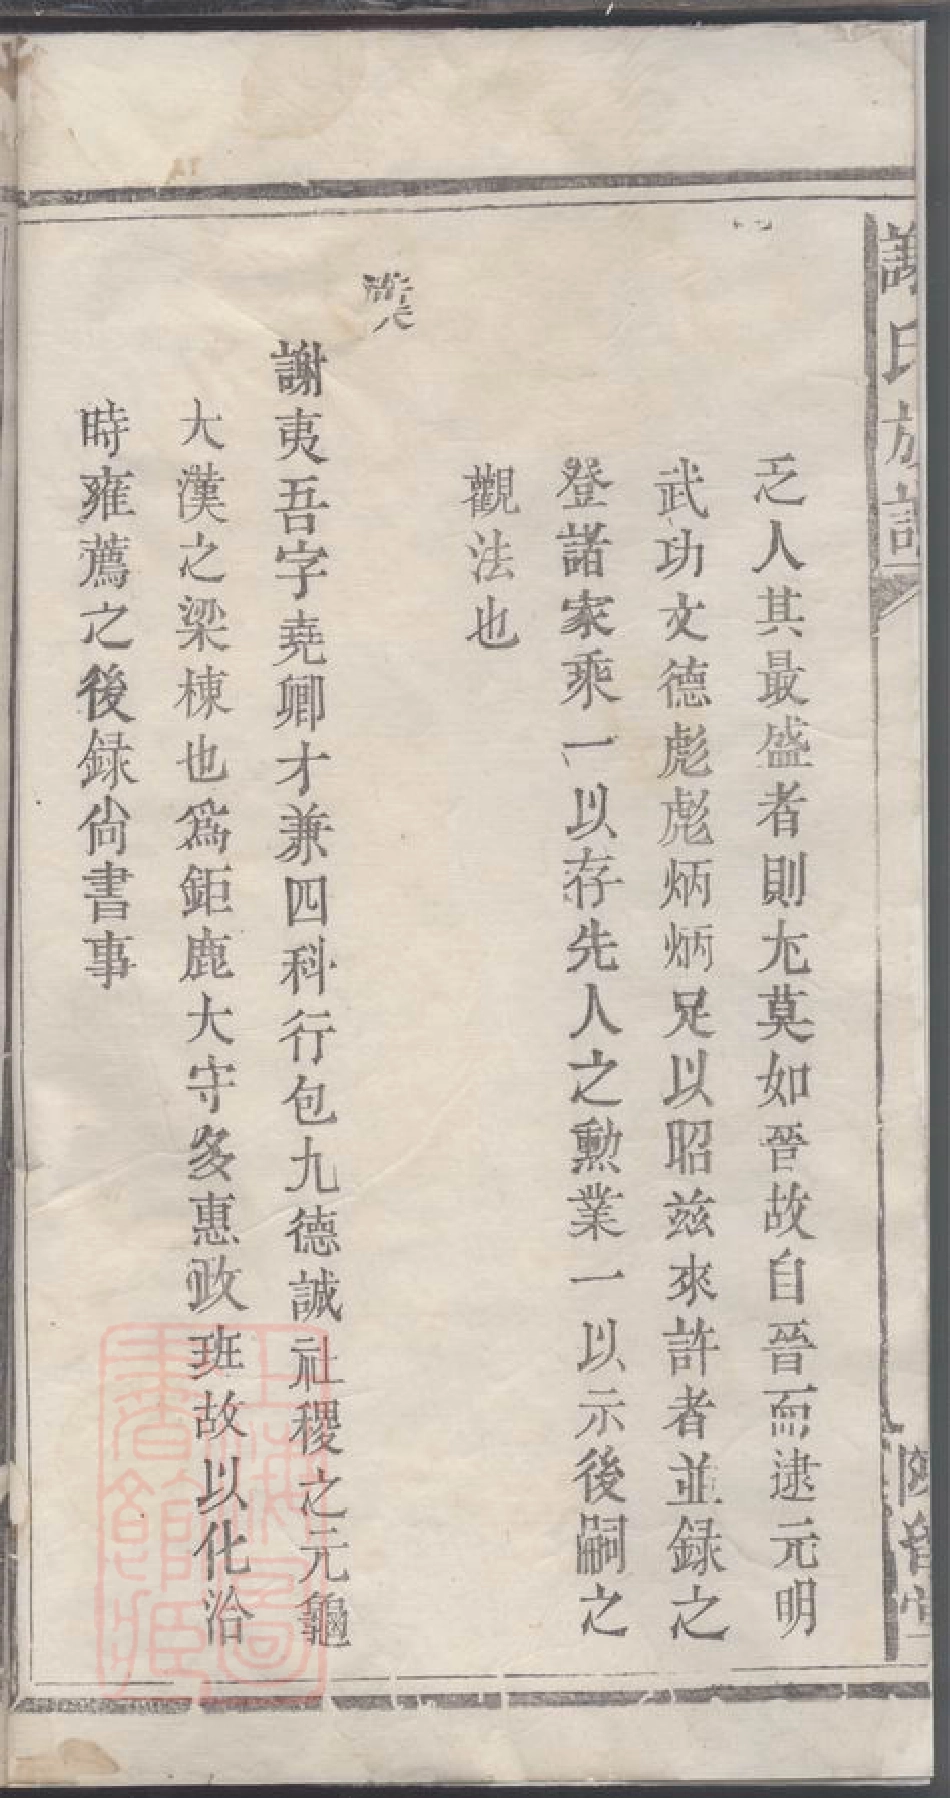 謝氏族譜
乏人其最盛者則尤莫如晉故自晉而逮元明
武功文德彪彪炳炳足以昭兹來許者並録之
登諸家乘一以存先人之勲業一以示後嗣之
觀法也
漢
謝夷吾字堯卿才兼四科行包九德誠社稷之元龜
大漢之梁棟也爲鉅鹿大守多惠政班故以化洽
時雍薦之後録尙書事
上海圖書館藏